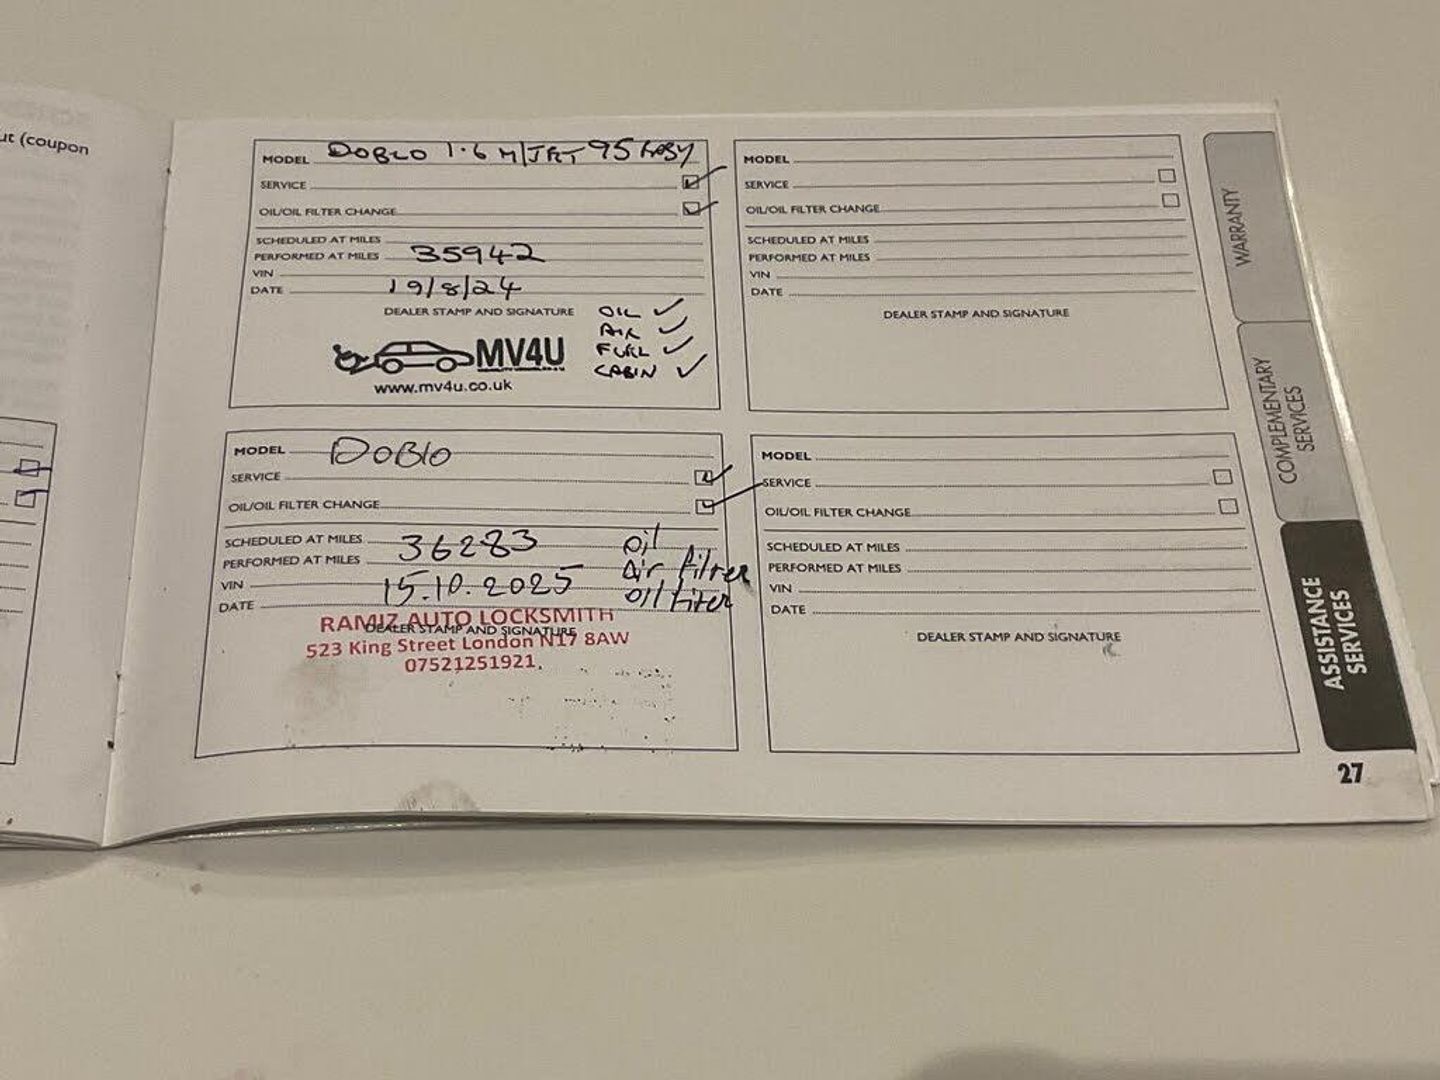 ut (coupon
MODEL DOBLO 1.6 M/JET 95
SERVICE
OIL/OIL FILTER CHANGE
SCHEDULED AT MILES
PERFORMED AT MILES 35942
VIN
DATE 19/8/24
DEALER STAMP AND SIGNATURE
OIL ✓
AIR ✓
FUEL ✓
CABIN ✓
MV4U
www.mv4u.co.uk
MODEL DOBLO
SERVICE
OIL/OIL FILTER CHANGE
SCHEDULED AT MILES 36283
PERFORMED AT MILES
VIN 15.10.2025
DATE
oil
Air filter
oil filter
RAMIZ AUTO LOCKSMITH
DEALER STAMP AND SIGNATURE
523 King Street London N17 8AW
07521251921.
MODEL
SERVICE
OIL/OIL FILTER CHANGE
SCHEDULED AT MILES
PERFORMED AT MILES
VIN
DATE
DEALER STAMP AND SIGNATURE
MODEL
SERVICE
OIL/OIL FILTER CHANGE
SCHEDULED AT MILES
PERFORMED AT MILES
VIN
DATE
DEALER STAMP AND SIGNATURE
WARRANTY
COMPLEMENTARY
SERVICES
ASSISTANCE
SERVICES
27